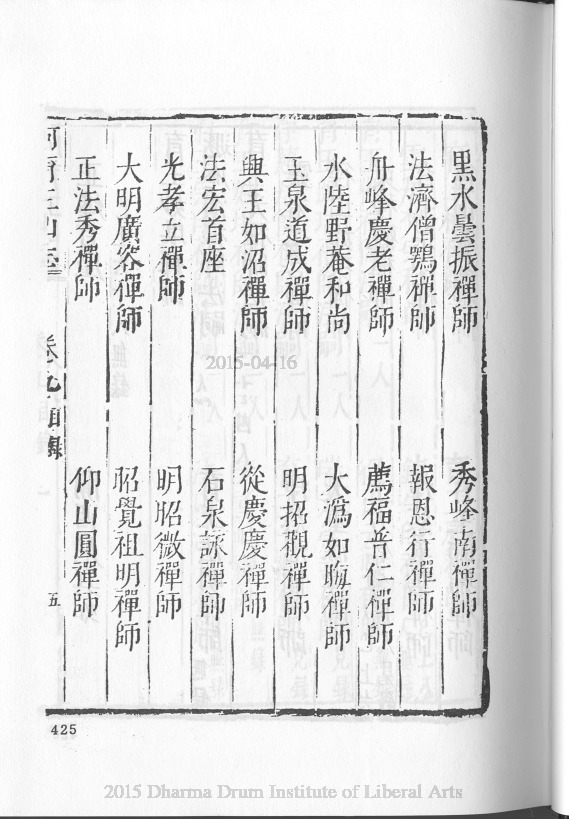 黑水曇振禪師 秀峰南禪師
法濟僧鶚禪師 報恩行禪師
舟峰慶老禪師 薦福普仁禪師
水陸野菴和尚 大溈如晦禪師
玉泉道成禪師 明招觀禪師
興王如沼禪師 從慶慶禪師
法宏首座 石泉詠禪師
光孝立禪師 明昭微禪師
大明廣容禪師 昭覺祖明禪師
正法秀禪師 仰山圓禪師
卷九目錄 五
425
2015-04-16
2015 Dharma Drum Institute of Liberal Arts